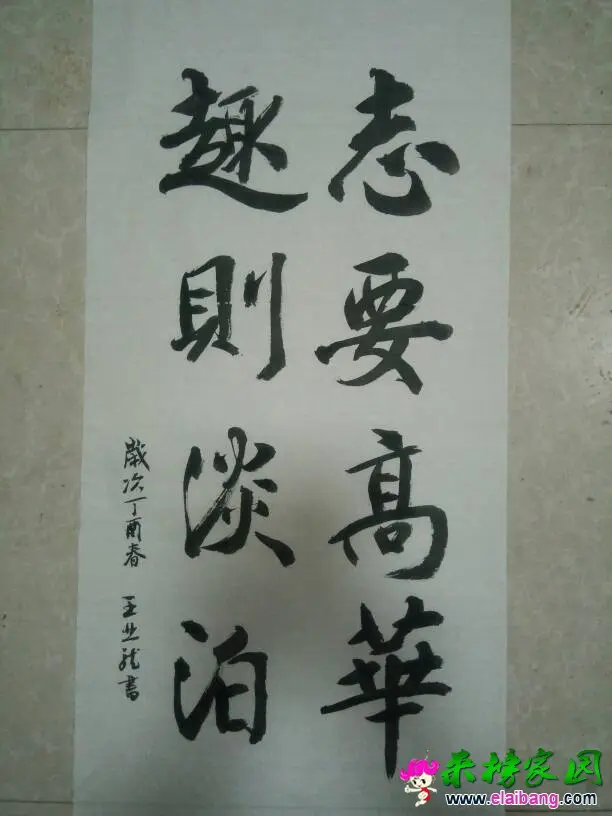 志要高華
趣則淡泊
歲次丁酉春 王业龙書
来榜家园
www.elaibang.com